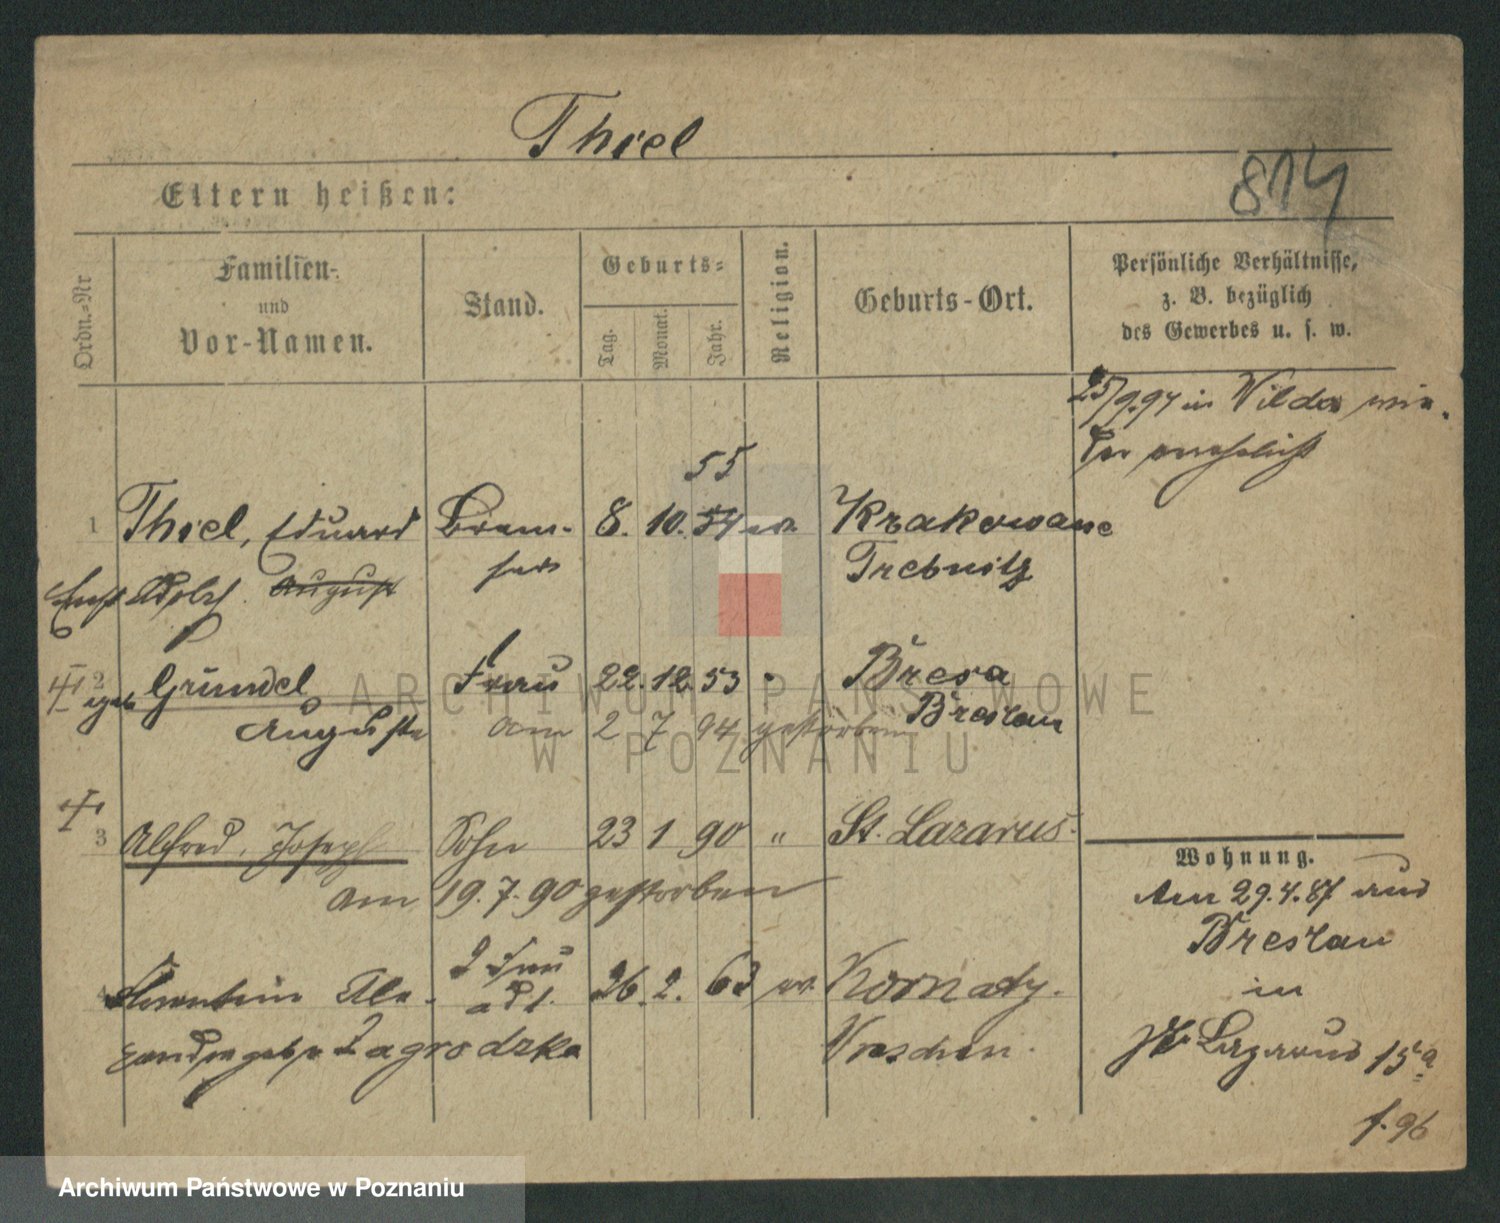 Thiel
814
Eltern heißen:
Ordn.=Nr
Familien-
und
Vor-Namen.
Stand.
Geburts=
Tag.
Monat.
Jahr.
Religion.
Geburts-Ort.
Persönliche Verhältnisse,
z. B. bezüglich
des Gewerbes u. s. w.
25/9.94 in Wilda wie-
der verehelicht
55
1 Thiel, Eduard Brem- 8. 10. 54 ev. Krakowane
ser Trebnitz
Ernst Adolf August
2 geb Gründel Frau 22. 12. 53 " Bresa
Auguste am 2 7 94 gestorben Breslau
3 Alfred, Joseph Sohn 23 1 90 " St. Lazarus.
am 19. 7. 90 gestorben
4 Florentine Ale- 2 Frau 26. 2. 63 ev. 
geb. Zagrodzka Wreschen.
Wohnung.
Am 29.4.87 aus
Breslau
in
St. Lazarus 15a
f. 96
ARCHIWUM PAŃSTWOWE
W POZNANIU
Archiwum Państwowe w Poznaniu